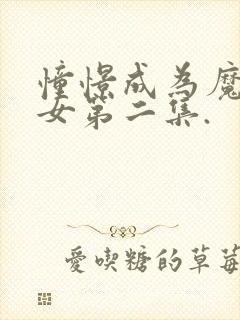 憧憬成為魔
女第二集.
愛喫糖的草莓